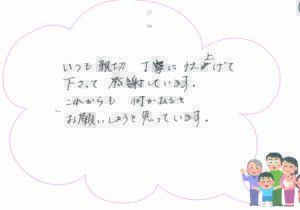 いつも親切 丁寧に仕上げて
下さって感謝しています。
これからも 何かあると
お願いしようと思っています。